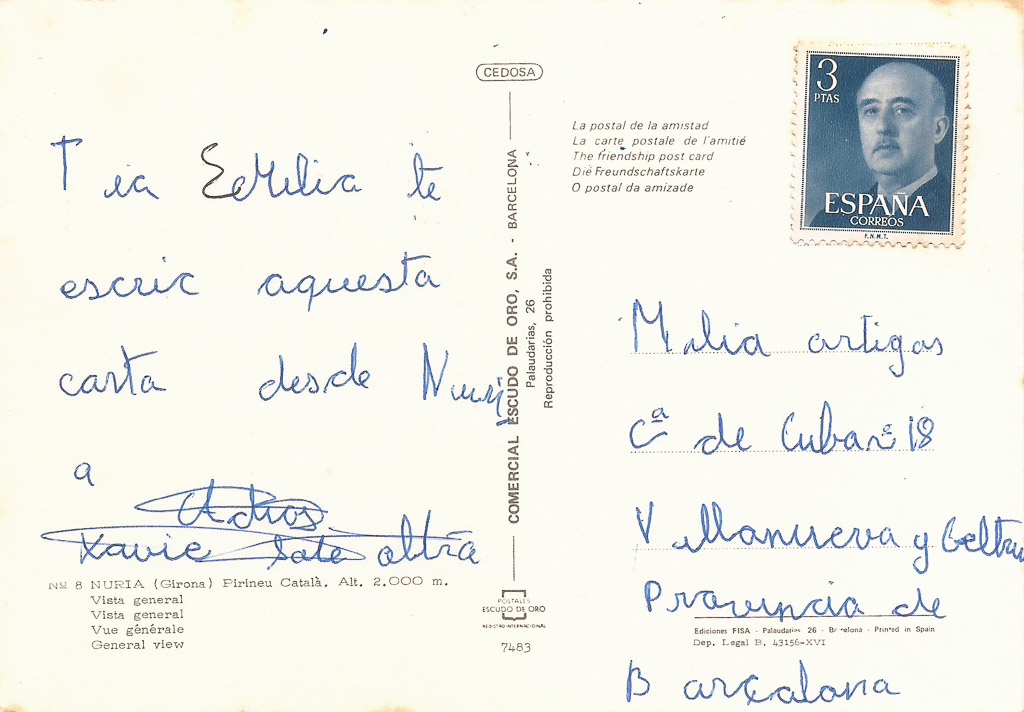 CEDOSA
Tia Emilia te
escric aquesta
carta desde Nuri
a
Adios
Xavie Sote altria
Nº 8 NURIA (Girona) Pirineu Català. Alt. 2.000 m.
Vista general
Vista general
Vue générale
General view
COMERCIAL ESCUDO DE ORO, S.A. - BARCELONA
Palaudarias, 26
Reproducción prohibida
POSTALES
ESCUDO DE ORO
REGISTRO INTERNACIONAL
7483
La postal de la amistad
La carte postale de l'amitié
The friendship post card
Die Freundschaftskarte
O postal da amizade
3
PTAS
ESPAÑA
CORREOS
F.N.M.T.
Milia artigas
Cª de Cuba nº 18
Villanueva y Geltru
Provincia de
Ediciones FISA - Palaudarias, 26 - Barcelona - Printed in Spain
Dep. Legal B. 43156-XVI
Barcelona